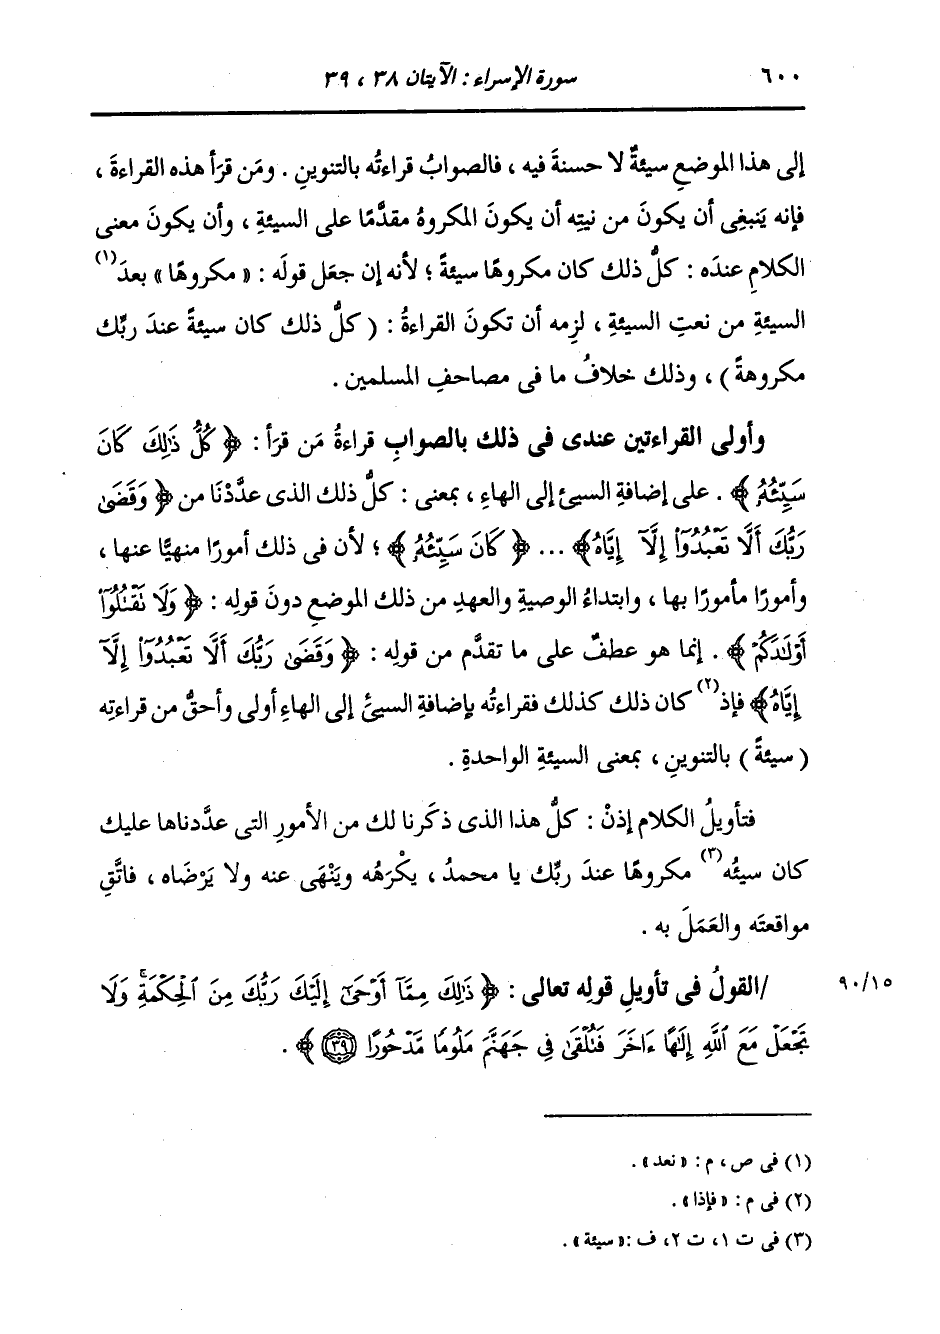 ٦٠٠ سورة الإسراء : الآيتان ٣٨ ، ٣٩
إلى هذا الموضعِ سيئةٌ لا حسنةَ فيه ، فالصوابُ قراءتُه بالتنوينِ . ومَن قرَأ هذه القراءةَ ،
فإنه يَنبغِى أن يكونَ من نيتِه أن يكونَ المكروهُ مقدَّمًا على السيئةِ ، وأن يكونَ معنى
الكلامِ عندَه : كلُّ ذلك كان مكروهًا سيئةً ؛ لأنه إن جعَل قولَه : « مكروهًا » بعدَ(١)
السيئةِ من نعتِ السيئةِ ، لزِمه أن تكونَ القراءةُ : ( كلُّ ذلك كان سيئةً عندَ ربِّك
مكروهةً ) ، وذلك خلافُ ما فى مصاحفِ المسلمين .
وأولى القراءتين عندى فى ذلك بالصوابِ قراءةُ مَن قرَأ : ﴿ كُلُّ ذَٰلِكَ كَانَ
سَيِّئُهُۥ ﴾ . على إضافةِ السيئِ إلى الهاءِ ، بمعنى : كلُّ ذلك الذى عدَّدْنَا من ﴿ وَقَضَىٰ
رَبُّكَ أَلَّا تَعْبُدُوٓا۟ إِلَّآ إِيَّاهُ ﴾ ... ﴿ كَانَ سَيِّئُهُۥ ﴾ ؛ لأن فى ذلك أمورًا منهيًّا عنها ،
وأمورًا مأمورًا بها ، وابتداءُ الوصيةِ والعهدِ من ذلك الموضعِ دونَ قولِه : ﴿ وَلَا نَقْتُلُوٓا۟
أَوْلَٰدَكُمْ ﴾ . إنما هو عطفٌ على ما تقدَّم من قولِه : ﴿ وَقَضَىٰ رَبُّكَ أَلَّا تَعْبُدُوٓا۟ إِلَّآ
إِيَّاهُ ﴾ فإذ(٢) كان ذلك كذلك فقراءتُه بإضافةِ السيئَ إلى الهاءِ أولى وأحقُّ من قراءتِه
( سيئةً ) بالتنوينِ ، بمعنى السيئةِ الواحدةِ .
فتأويلُ الكلامِ إذنْ : كلُّ هذا الذى ذكَرنا لك من الأمورِ التى عدَّدناها عليك
كان سيئُه(٣) مكروهًا عندَ ربِّك يا محمدُ ، يكْرَهُه ويَنْهَى عنه ولا يَرْضَاه ، فاتَّقِ
مواقعتَه والعَمَلَ به .
١٥/٩٠ /القولُ فى تأويلِ قولِه تعالى : ﴿ ذَٰلِكَ مِمَّآ أَوْحَىٰٓ إِلَيْكَ رَبُّكَ مِنَ ٱلْحِكْمَةِ ۗ وَلَا
تَجْعَلْ مَعَ ٱللَّهِ إِلَٰهًا ءَاخَرَ فَتُلْقَىٰ فِى جَهَنَّمَ مَلُومًا مَّدْحُورًا ﴿٣٩﴾ ﴾ .
(١) فى ص ، م : « نعد » .
(٢) فى م : « فإذا » .
(٣) فى ت ١، ت ٢، ف :« سيئة » .